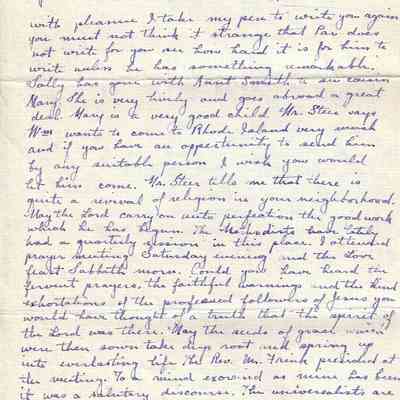 with pleasure I take my pen to write you again
you must not think it strange that Pa does
not write for you see how hard it is for him to
write unless he has something remarkable.
Sally has gone with Aunt Smith to see cousin
Mary. She is very lively and goes abroad a great
deal. Mary is a very good child Mr. Steer says
Wm wants to come to Rhode Island very much
and if you have an oppertunity to send him
by any suitable person I wish you would
let him come. Mr. Steer tells me that there is
quite a revival of religion in your neighborhood.
May the Lord carry on unto perfection the good work
which he has begun. The Methodists have lately
had a quarterly session in this place. I attended
prayer meeting Saturday evening and the Love
feast Sabbath morn. Could you have heard the
fervent prayers, the faithful warnings and the kind
exhortations of the professed followers of Jesus you
would have thought of a truth that the spirit of
the Lord was there. May the seeds of grace which
were then sown take deep root and spring up
into everlasting life. The Rev. Mr. Frink presided at
the meeting. To a mind exercised as mine has been
it was a salutary discourse. The universalists are